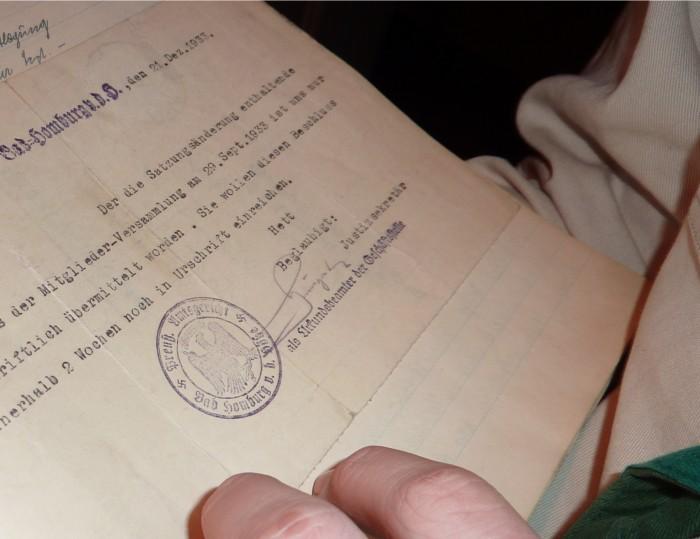 Bad-Homburg v.d.H., den 21. Dez. 1933.
Der die Satzungsänderung enthaltende
der Mitglieder-Versammlung am 29. Sept. 1933 ist uns nur
riftlich übermittelt worden. Sie wollen diesen Beschluss
nerhalb 2 Wochen noch in Urschrift einreichen.
Hett
Beglaubigt:
Justizsekretär
als Urkundsbeamter der Geschäftsstelle
Preuß. Amtsgericht
Bad Homburg v. d. Höhe